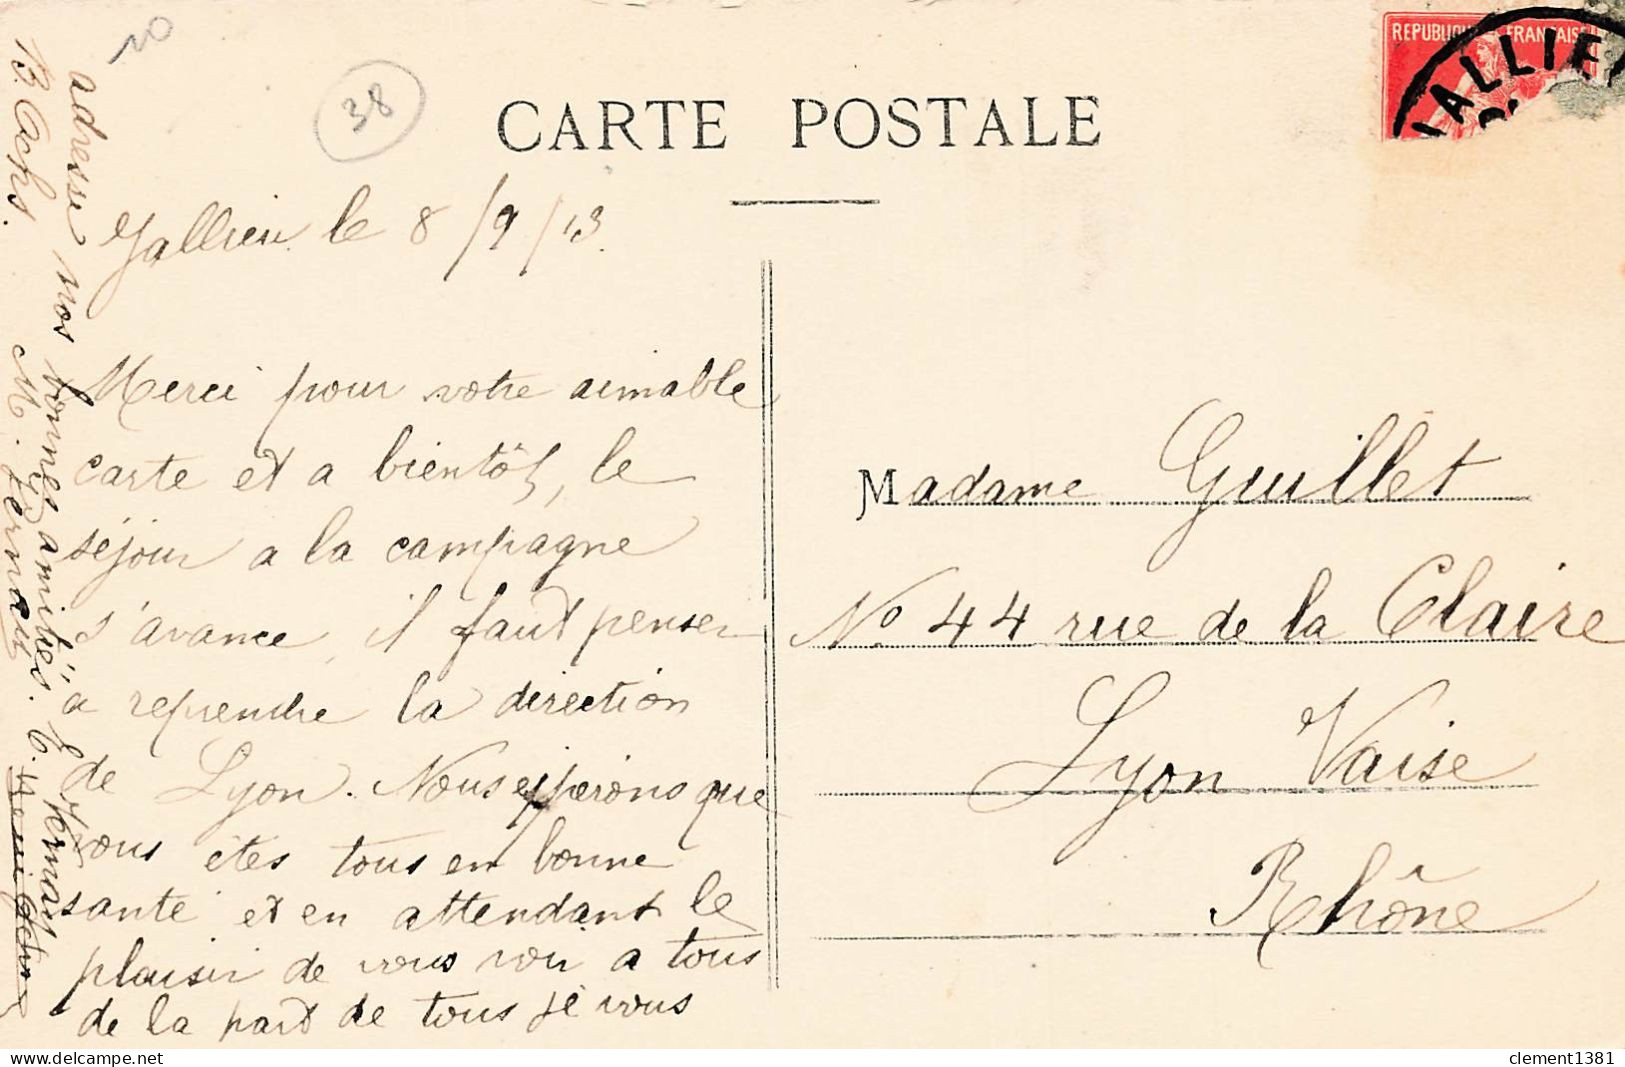 10
38
CARTE POSTALE
REPUBLIQUE FRANÇAISE
JALLIE
Jallieu le 8/9/13.
Merci pour votre aimable
carte et a bientôt, le
séjour a la campagne
s'avance, il faut penser
a reprendre la direction
de Lyon. Nous espérons que
vous êtes tous en bonne
santé et en attendant le
plaisir de vous voir a tous
de la part de tous je vous
adresse nos bonnes amitiés.
Madame Guillet
No 44 rue de la Claire
Lyon Vaise
Rhône
clement1381